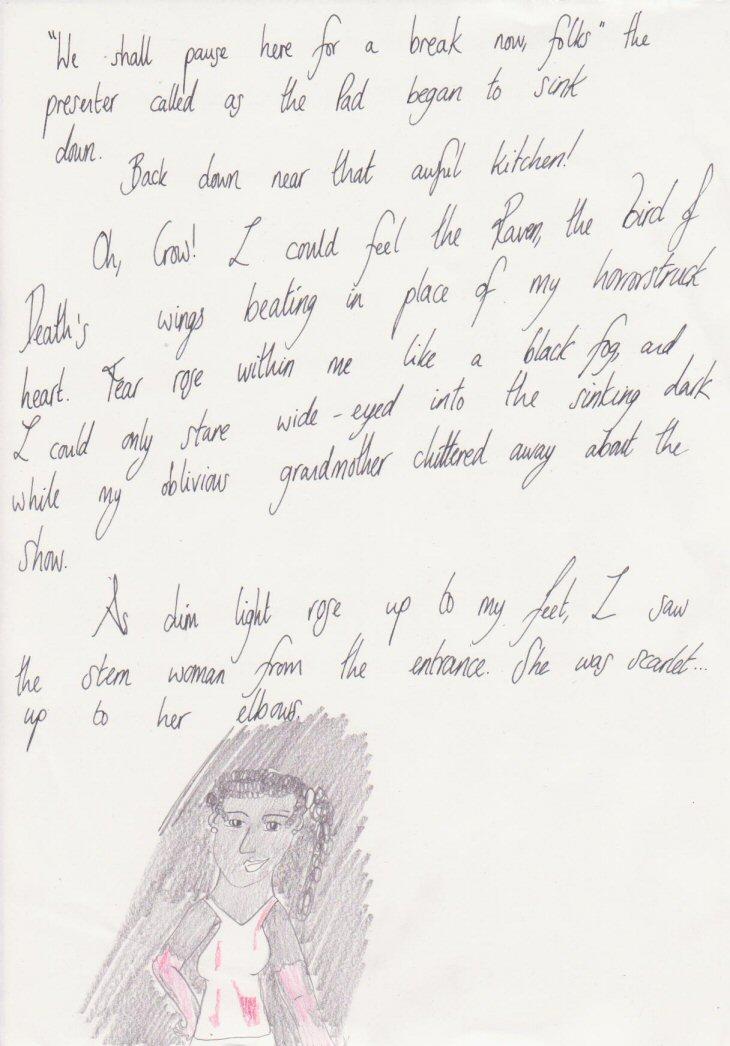 "We shall pause here for a break now, folks" the
presenter called as the Pad began to sink
down.
Back down near that awful kitchen!
Oh, Crow! I could feel the Raven, the bird of
Death's wings beating in place of my horrorstruck
heart. Fear rose within me like a black fog, and
I could only stare wide-eyed into the sinking dark
while my oblivious grandmother chittered away about the
show.
As dim light rose up to my feet, I saw
the stern woman from the entrance. She was scarlet...
up to her elbows.